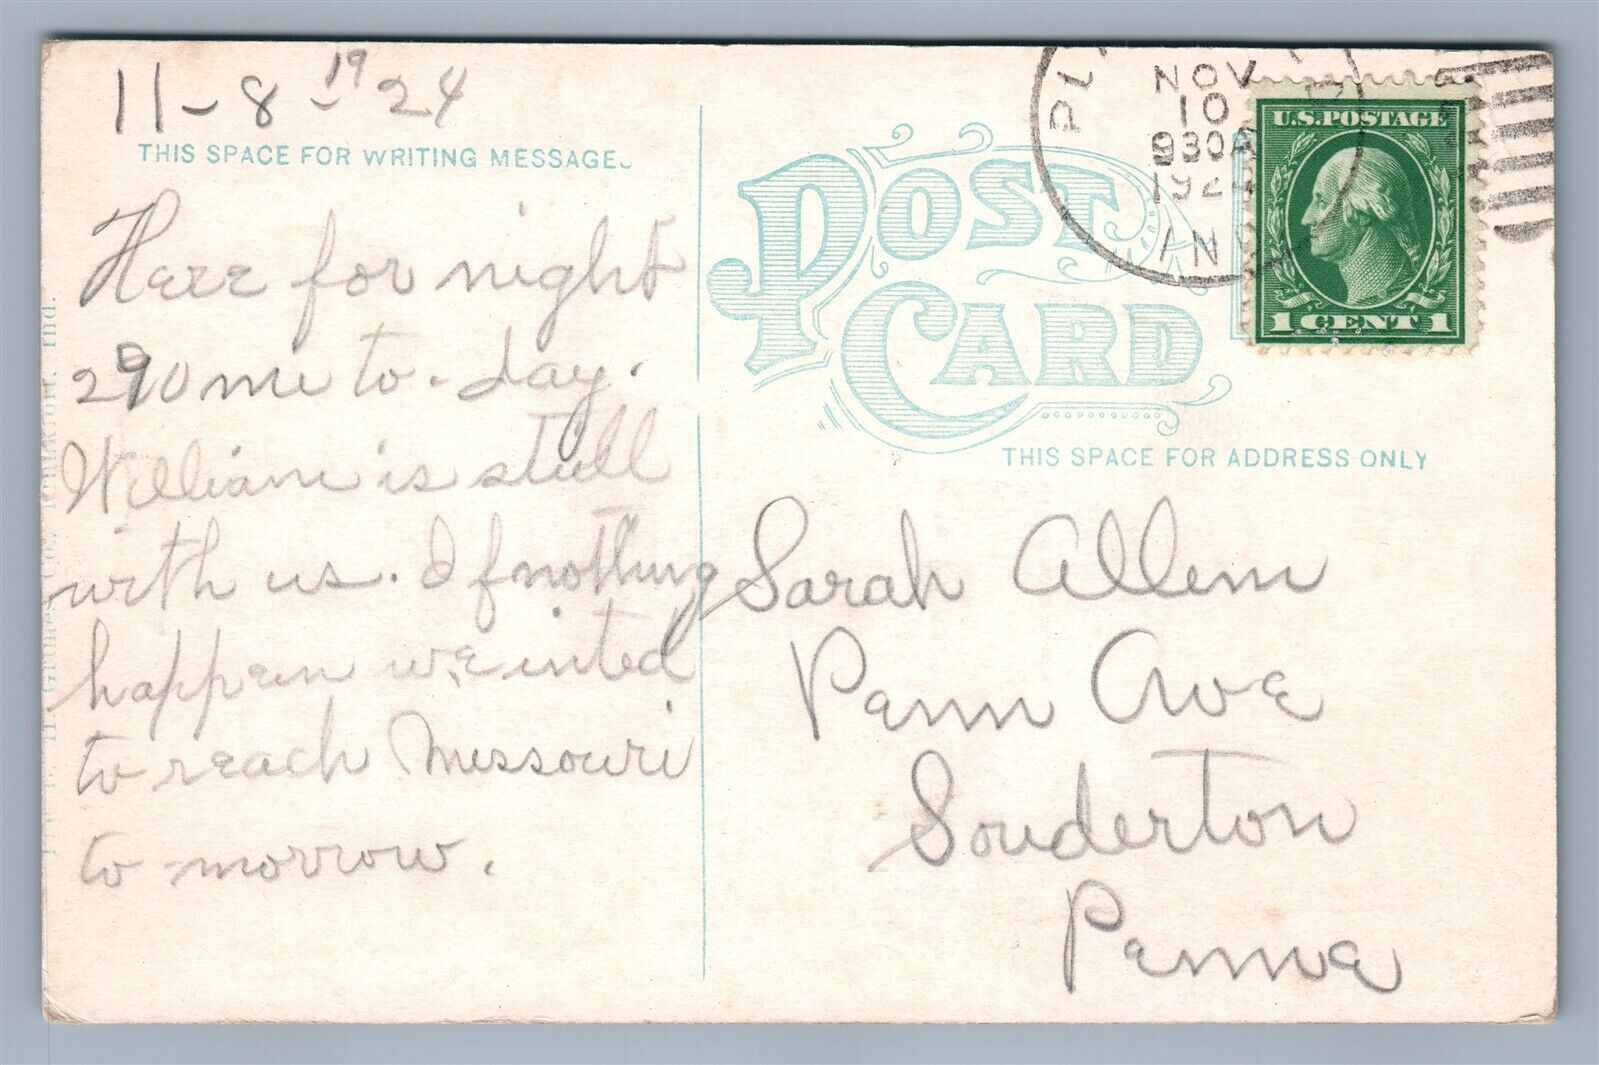 11-8-1924
THIS SPACE FOR WRITING MESSAGE.
Here for night
290 mi to-day.
William is still
with us. If nothing
happen we inted
to reach Missouri
to morrow.
POST CARD
THIS SPACE FOR ADDRESS ONLY
Sarah Allem
Penn Ave
Souderton
Penna
NOV
10
930A
192
IND
U.S. POSTAGE
1 CENT 1
Co., Ind.